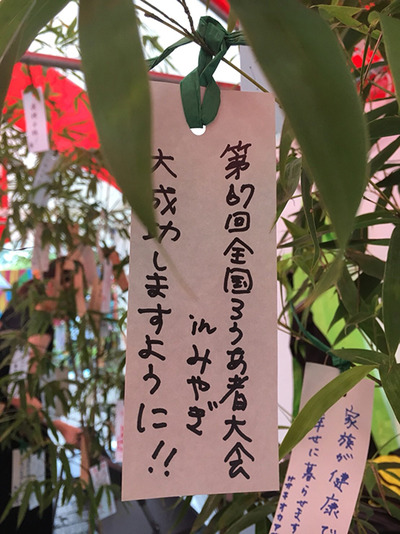 第67回全国ろうあ者大会
inみやぎ
大成功しますように!!
家族が健康で
幸せに暮らせます